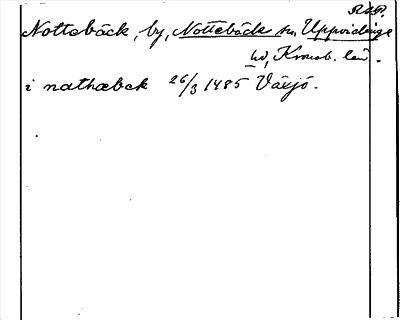 R.A.P.
Nottebäck, by, Nottebäck sn, Uppvidinge
hd, Kronob. län.
i nathæbek 26/3 1485 Växjö.